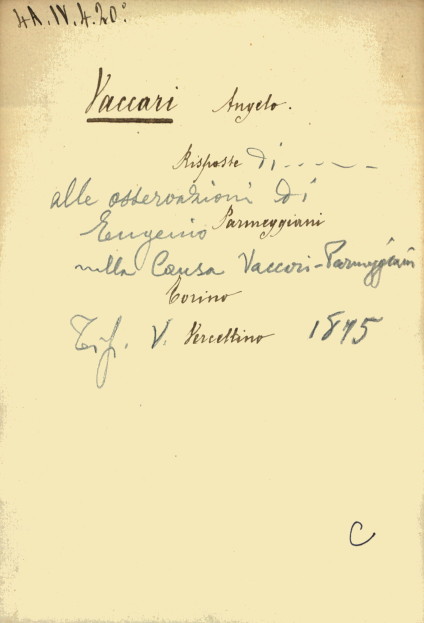 41.IV.4.20.
Vaccari Angelo.
Risposte di - - - -
alle osservazioni di
Eugenio Parmeggiani
nella Causa Vaccari-Parmeggiani
Torino
Tip. V. Vercellino 1875
C